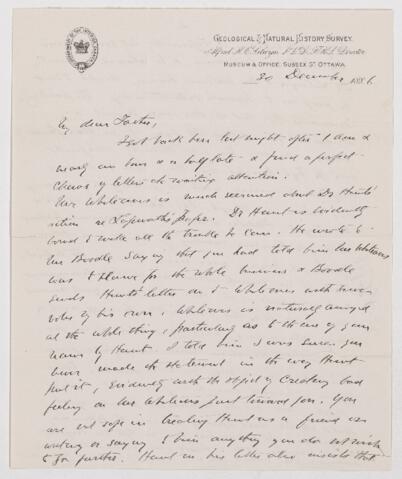 GEOLOGICAL & NATURAL HISTORY SURVEY.
Alfred R.C. Selwyn, LL.D., F.R.S., Director
MUSEUM & OFFICE: SUSSEX ST. OTTAWA.
30 December 1886
My dear Father,
I got back here last night after 1 a.m. &
nearly an hour & a half late & find a perfect
chaos of letters &c awaiting attention.
Mr Whiteaves is much exercised about Dr Hunt's
action re Paper. Dr Hunt is evidently
bound to make all the trouble he can. He wrote to
Mr Beadle saying that you had told him Mr Whiteaves
was to blame for the whole business & Beadle
sends Hunt's letter on to Whiteaves with
notes of his own. Whiteaves is naturally annoyed
at the whole thing, & particularly as to the use of your
name by Hunt. I told him I was sure you
never made the statement in the way Hunt
put it, evidently with the object of creating bad
feeling on Mr Whiteaves part toward you. You
are not safe in treating Hunt as a friend or
writing or saying to him anything you do not wish
to go further. Hunt in his letter also insists that